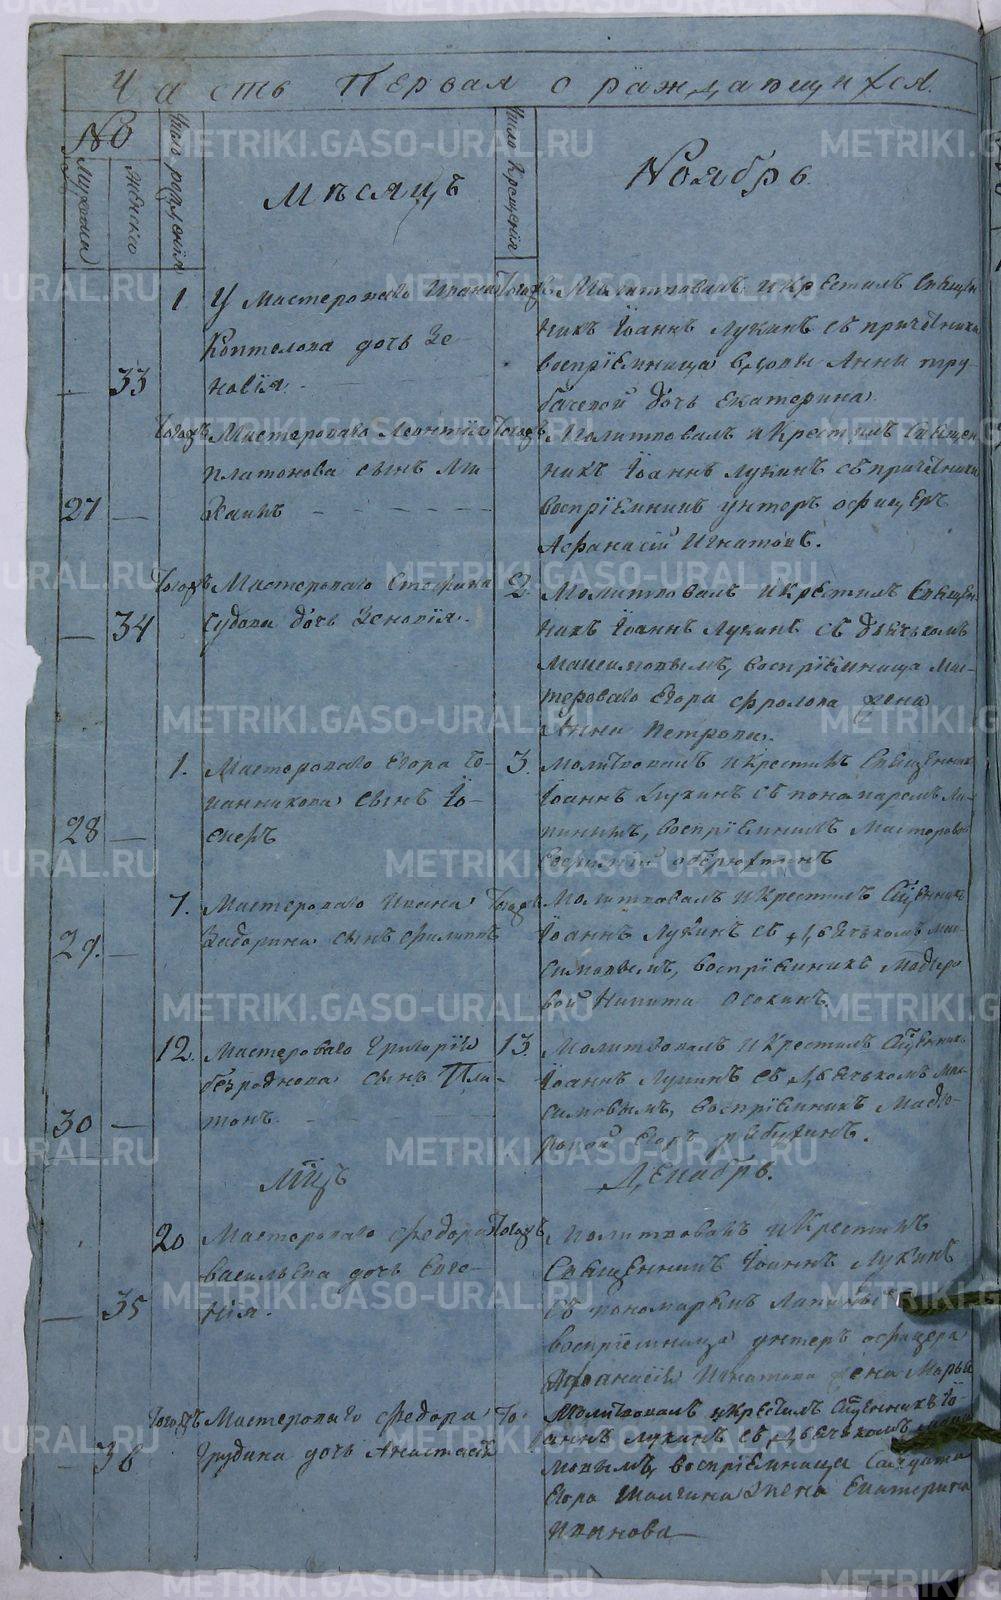 Часть Первая о раждающихся.
№
Мужеска
Женска
Число рождения
Мѣсяцъ
Число Крещенія
Ноябрь.
1 У Мастероваго Ивана
Коптелова дочь Зе-
33 новія.
Тогожъ Молитвовалъ и Крестилъ Свящѣн
никъ Іоаннъ Лукинъ съ причѣтники
воспріѣмница вдовы Анны тру-
бачевой дочь Екатерина.
Тогожъ Мастероваго Леонтія
Платонова сынъ Ми-
27 — хаилъ
Тогожъ Молитвовалъ и Крестилъ Священ-
никъ Іоаннъ Лукинъ съ причѣтники
воспріемникъ унтеръ офицеръ
Афанасій Игнатовъ.
Тогожъ Мастероваго Стефана
— 34 Судова дочь Зеновія.
2. Молитвовалъ и Крестилъ Священ-
никъ Іоаннъ Лукинъ съ дьячькомъ
Максимовымъ, воспріѣмница Мас-
тероваго Егора Фролова жена
Анна Петрова.
1. Мастероваго Егора
сынъ Іо-
28 — сифъ
3. Молитвовалъ и Крестилъ Священникъ
Іоаннъ Лукинъ съ понамаремъ Ла-
пинымъ, воспріѣмникъ Мастеровой
7. Мастероваго Ивана
29. — сынъ Филиппъ
Тогожъ Молитвовалъ и Крестилъ Сщенникъ
Іоаннъ Лукинъ съ дьячькомъ Мак-
симовымъ, воспріѣмникъ Мастеро
вой Никита Осокинъ.
12. Мастероваго Григорія
безроднова сынъ Пла-
30 — тонъ.
13. Молитвовалъ и Крестилъ Сщенникъ
Іоаннъ Лукинъ съ дьячькомъ Мак-
симовымъ, воспріѣмникъ Масте-
ровой Егоръ рябухинъ.
Мцъ
Декабрь.
20 Мастероваго Федора
васильева дочь Евге-
— 35 нія.
Тогожъ Молитвовалъ и Крестилъ
Священникъ Іоаннъ Лукинъ
съ пономаремъ Лапинымъ
воспріемница унтеръ офицера
Афанасія Игнатова жена Марья
Тогожъ Мастероваго Федора
— 36 Грудина дочь Анастасія
То. Молитвовалъ и крестилъ Сщенникъ Іо-
аннъ Лукинъ съ дьячькомъ Макси
мовымъ, воспріемница Салдата
Егора Шалгина жена Екатерина
Иванова
METRIKI.GASO-URAL.RU